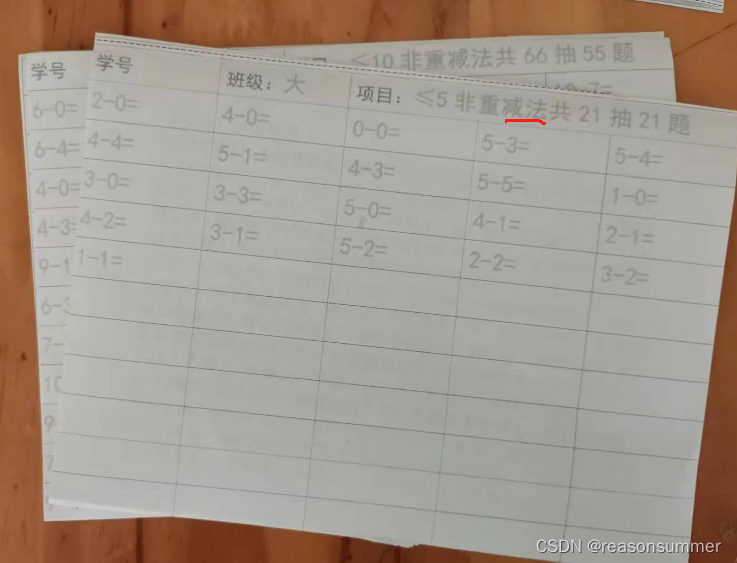 ≤10 非重减法共 66 抽 55 题
学号
6-0=
6-4=
4-0=
4-3=
9-1
6-3
7-
10
9-
学号 班级：大 项目：≤5 非重减法共 21 抽 21 题
2-0= 4-0= 0-0= 5-3= 5-4=
4-4= 5-1= 4-3= 5-5= 1-0=
3-0= 3-3= 5-0= 4-1= 2-1=
4-2= 3-1= 5-2= 2-2= 3-2=
1-1=
CSDN @reasonsummer